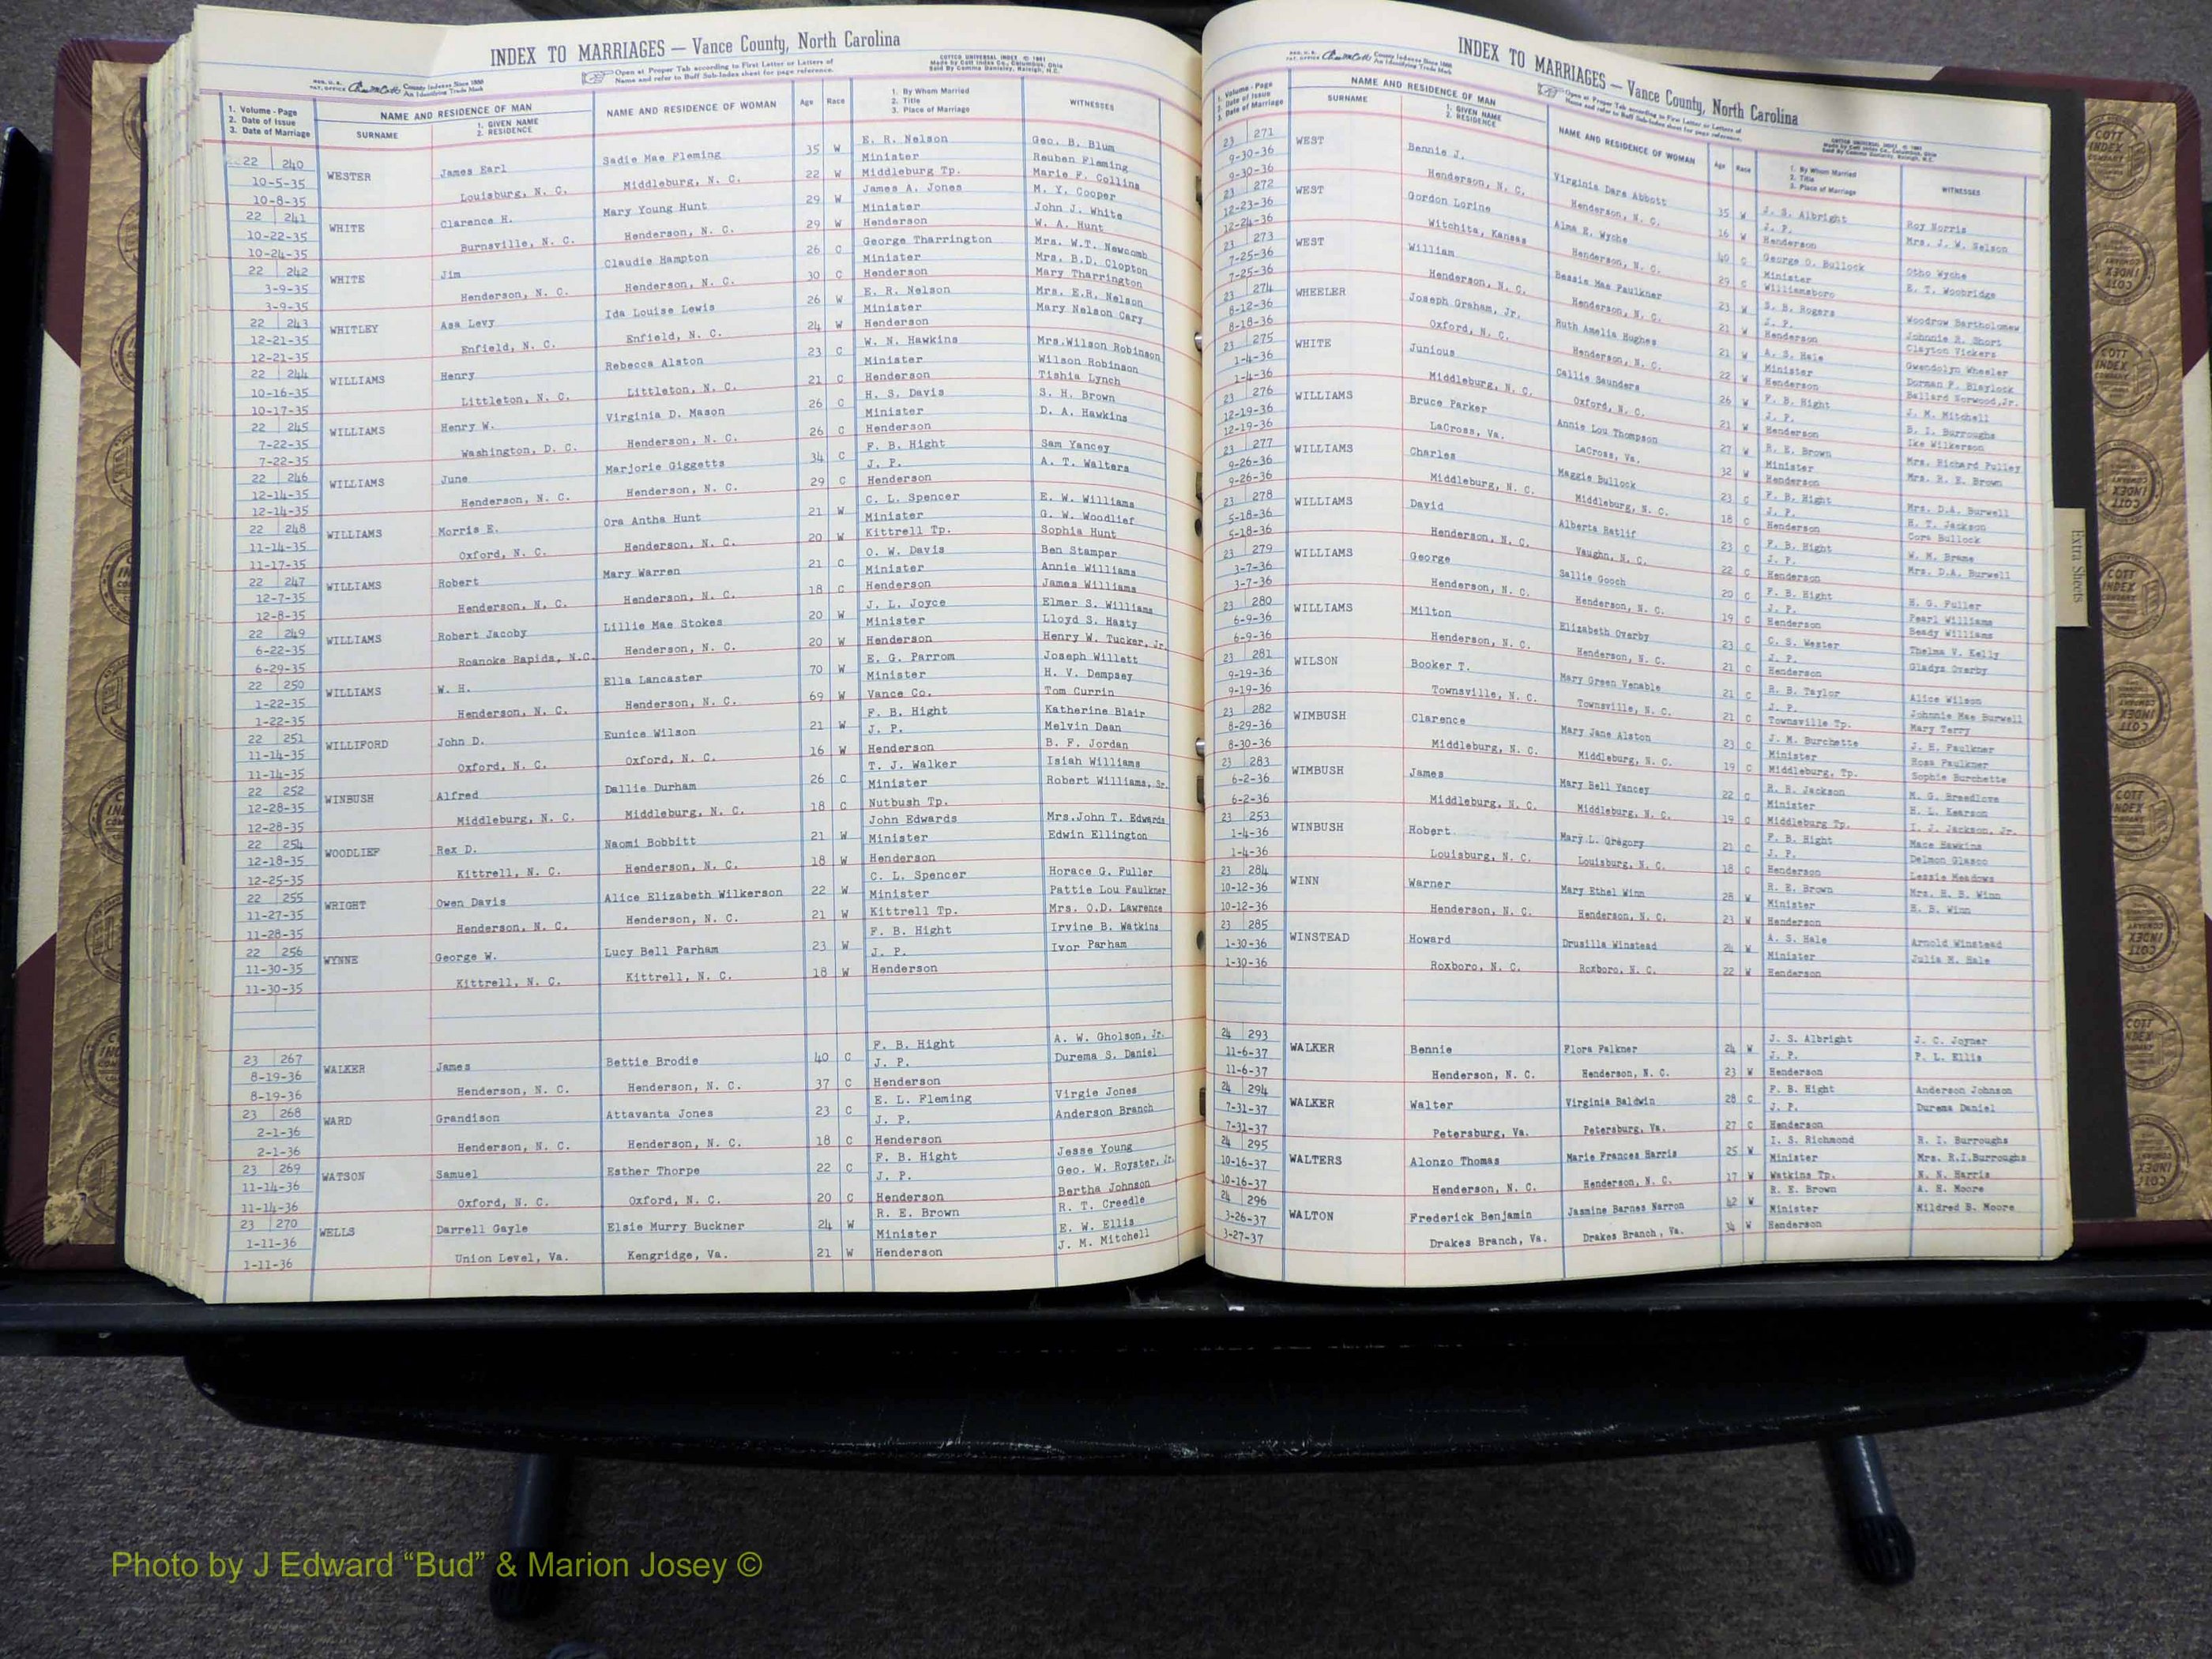 INDEX TO MARRIAGES — Vance County, North Carolina
REG. U. S. PAT. OFFICE County Indexes Since 1888 An Identifying Trade Mark
Open at Proper Tab according to First Letter or Letters of
Name and refer to Buff Sub-Index sheet for page reference.
COTTCO UNIVERSAL INDEX © 1961
Made by Cott Index Co., Columbus, Ohio
1. Volume - Page 2. Date of Issue 3. Date of Marriage
NAME AND RESIDENCE OF MAN
SURNAME 1. GIVEN NAME 2. RESIDENCE
NAME AND RESIDENCE OF WOMAN
Age Race
1. By Whom Married 2. Title 3. Place of Marriage
WITNESSES
22 240 WESTER James Earl Sadie Mae Fleming 35 W E. R. Nelson Geo. B. Blum
10-5-35 Louisburg, N. C. Middleburg, N. C. 22 W Minister Reuben Fleming
10-8-35 Middleburg Tp. Marie F. Collins
22 241 WHITE Clarence H. Mary Young Hunt 29 W James A. Jones M. Y. Cooper
10-22-35 Burnsville, N. C. Henderson, N. C. 29 W Minister John J. White
10-24-35 Henderson W. A. Hunt
22 242 WHITE Jim Claudie Hampton 26 C George Tharrington Mrs. W.T. Newcomb
3-9-35 Henderson, N. C. Henderson, N. C. 30 C Minister Mrs. B.D. Clopton
3-9-35 Henderson Mary Tharrington
22 243 WHITLEY Asa Levy Ida Louise Lewis 26 W E. R. Nelson Mrs. E.R. Nelson
12-21-35 Enfield, N. C. Enfield, N. C. 24 W Minister Mary Nelson Cary
12-21-35 Henderson
22 244 WILLIAMS Henry Rebecca Alston 23 C W. N. Hawkins Mrs.Wilson Robinson
10-16-35 Littleton, N. C. Littleton, N. C. 21 C Minister Wilson Robinson
10-17-35 Henderson Tishia Lynch
22 245 WILLIAMS Henry W. Virginia D. Mason 26 C H. S. Davis S. H. Brown
7-22-35 Washington, D. C. Henderson, N. C. 26 C Minister D. A. Hawkins
7-22-35 Henderson
22 246 WILLIAMS June Marjorie Giggetts 34 C F. B. Hight Sam Yancey
12-14-35 Henderson, N. C. Henderson, N. C. 29 C J. P. A. T. Walters
12-14-35 Henderson
22 248 WILLIAMS Morris E. Ora Antha Hunt 21 W C. L. Spencer E. W. Williams
11-14-35 Oxford, N. C. Henderson, N. C. 20 W Minister G. W. Woodlief
11-17-35 Kittrell Tp. Sophia Hunt
22 247 WILLIAMS Robert Mary Warren 21 C O. W. Davis Ben Stamper
12-7-35 Henderson, N. C. Henderson, N. C. 18 C Minister Annie Williams
12-8-35 Henderson James Williams
22 249 WILLIAMS Robert Jacoby Lillie Mae Stokes 20 W J. L. Joyce Elmer S. Williams
6-22-35 Roanoke Rapids, N.C. Henderson, N. C. 20 W Minister Lloyd S. Hasty
6-29-35 Henderson Henry W. Tucker, Jr.
22 250 WILLIAMS W. H. Ella Lancaster 70 W E. G. Parrom Joseph Willett
1-22-35 Henderson, N. C. Henderson, N. C. 69 W Minister H. V. Dempsey
1-22-35 Vance Co. Tom Currin
22 251 WILLIFORD John D. Eunice Wilson 21 W F. B. Hight Katherine Blair
11-14-35 Oxford, N. C. Oxford, N. C. 16 W J. P. Melvin Dean
11-14-35 Henderson B. F. Jordan
22 252 WINBUSH Alfred Dallie Durham 26 C T. J. Walker Isiah Williams
12-28-35 Middleburg, N. C. Middleburg, N. C. 18 C Minister Robert Williams, Sr.
12-28-35 Nutbush Tp.
22 254 WOODLIEF Rex D. Naomi Bobbitt 21 W John Edwards Mrs.John T. Edwards
12-18-35 Kittrell, N. C. Henderson, N. C. 18 W Minister Edwin Ellington
12-25-35 Henderson
22 255 WRIGHT Owen Davis Alice Elizabeth Wilkerson 22 W C. L. Spencer Horace G. Fuller
11-27-35 Henderson, N. C. Henderson, N. C. 21 W Minister Pattie Lou Faulkner
11-28-35 Kittrell Tp. Mrs. O.D. Lawrence
22 256 WYNNE George W. Lucy Bell Parham 23 W F. B. Hight Irvine B. Watkins
11-30-35 Kittrell, N. C. Kittrell, N. C. 18 W J. P. Ivor Parham
11-30-35 Henderson
23 267 WALKER James Bettie Brodie 40 C F. B. Hight A. W. Gholson, Jr.
8-19-36 Henderson, N. C. Henderson, N. C. 37 C J. P. Durema S. Daniel
8-19-36 Henderson
23 268 WARD Grandison Attavanta Jones 23 C E. L. Fleming Virgie Jones
2-1-36 Henderson, N. C. Henderson, N. C. 18 C J. P. Anderson Branch
2-1-36 Henderson
23 269 WATSON Samuel Esther Thorpe 22 C F. B. Hight Jesse Young
11-14-36 Oxford, N. C. Oxford, N. C. 20 C J. P. Geo. W. Royster, Jr.
11-14-36 Henderson Bertha Johnson
23 270 WELLS Darrell Gayle Elsie Murry Buckner 24 W R. E. Brown R. T. Creedle
1-11-36 Union Level, Va. Kengridge, Va. 21 W Minister E. W. Ellis
1-11-36 Henderson J. M. Mitchell
INDEX TO MARRIAGES — Vance County, North Carolina
Open at Proper Tab according to First Letter or Letters of
Name and refer to Buff Sub-Index sheet for page reference.
1. Volume - Page 2. Date of Issue 3. Date of Marriage
NAME AND RESIDENCE OF MAN
SURNAME 1. GIVEN NAME 2. RESIDENCE
NAME AND RESIDENCE OF WOMAN
Age Race
1. By Whom Married 2. Title 3. Place of Marriage
WITNESSES
23 271 WEST Bennie J. Virginia Dare Abbott 35 W J. S. Albright Roy Norris
9-30-36 Henderson, N. C. Henderson, N. C. 16 W J. P. Mrs. J. W. Nelson
9-30-36 Henderson
23 272 WEST Gordon Lorine Alma E. Wyche 40 C George O. Bullock Otho Wyche
12-23-36 Witchita, Kansas Henderson, N. C. 29 C Minister E. T. Woobridge
12-24-36 Williamsboro
23 273 WEST William Bessie Mae Faulkner 23 W S. B. Rogers Woodrow Bartholomew
7-25-36 Henderson, N. C. Henderson, N. C. 21 W J. P. Johnnie R. Short
7-25-36 Henderson Clayton Vickers
23 274 WHEELER Joseph Graham, Jr. Ruth Amelia Hughes 21 W A. S. Hale Gwendolyn Wheeler
8-12-36 Oxford, N. C. Henderson, N. C. 22 W Minister Dorman F. Blaylock
8-18-36 Henderson Ballard Norwood,Jr.
23 275 WHITE Junious Callie Saunders 26 W F. B. Hight J. M. Mitchell
1-4-36 Middleburg, N. C. Oxford, N. C. 21 W J. P. B. I. Burroughs
1-4-36 Henderson Ike Wilkerson
23 276 WILLIAMS Bruce Parker Annie Lou Thompson 27 W R. E. Brown Mrs. Richard Pulley
12-19-36 LaCross, Va. LaCross, Va. 32 W Minister Mrs. R. E. Brown
12-19-36 Henderson
23 277 WILLIAMS Charles Maggie Bullock 23 C F. B. Hight Mrs. D.A. Burwell
9-26-36 Middleburg, N. C. Middleburg, N. C. 18 C J. P. H. T. Jackson
9-26-36 Henderson Cora Bullock
23 278 WILLIAMS David Alberta Ratlif 23 C F. B. Hight W. M. Brame
5-18-36 Henderson, N. C. Vaughn, N. C. 22 C J. P. Mrs. D.A. Burwell
5-18-36 Henderson
23 279 WILLIAMS George Sallie Gooch 20 C F. B. Hight H. G. Fuller
3-7-36 Henderson, N. C. Henderson, N. C. 19 C J. P. Pearl Williams
3-7-36 Henderson Beady Williams
23 280 WILLIAMS Milton Elizabeth Overby 23 C C. S. Wester Thelma V. Kelly
6-9-36 Henderson, N. C. Henderson, N. C. 21 C J. P. Gladys Overby
6-9-36 Henderson
23 281 WILSON Booker T. Mary Green Venable 21 C R. B. Taylor Alice Wilson
9-19-36 Townsville, N. C. Townsville, N. C. 21 C J. P. Johnnie Mae Burwell
9-19-36 Townsville Tp. Mary Terry
23 282 WIMBUSH Clarence Mary Jane Alston 23 C J. M. Burchette J. E. Faulkner
8-29-36 Middleburg, N. C. Middleburg, N. C. 19 C Minister Rosa Faulkner
8-30-36 Middleburg, Tp. Sophie Burchette
23 283 WIMBUSH James Mary Bell Yancey 22 C R. B. Jackson M. G. Breedlove
6-2-36 Middleburg, N. C. Middleburg, N. C. 19 C Minister H. L. Kearson
6-2-36 Middleburg Tp. I. J. Jackson, Jr.
23 253 WINBUSH Robert Mary L. Gregory 21 C F. B. Hight Mace Hawkins
1-4-36 Louisburg, N. C. Louisburg, N. C. 18 C J. P. Delmon Glasco
1-4-36 Henderson Lessie Meadows
23 284 WINN Warner Mary Ethel Winn 28 W R. E. Brown Mrs. H. B. Winn
10-12-36 Henderson, N. C. Henderson, N. C. 23 W Minister H. B. Winn
10-12-36 Henderson
23 285 WINSTEAD Howard Drusilla Winstead 24 W A. S. Hale Arnold Winstead
1-30-36 Roxboro, N. C. Roxboro, N. C. 22 W Minister Julia H. Hale
1-30-36 Henderson
24 293 WALKER Bennie Flora Falkner 24 W J. S. Albright J. C. Joyner
11-6-37 Henderson, N. C. Henderson, N. C. 23 W J. P. P. L. Ellis
11-6-37 Henderson
24 294 WALKER Walter Virginia Baldwin 28 C F. B. Hight Anderson Johnson
7-31-37 Petersburg, Va. Petersburg, Va. 27 C J. P. Durema Daniel
7-31-37 Henderson
24 295 WALTERS Alonzo Thomas Marie Frances Harris 25 W I. S. Richmond R. I. Burroughs
10-16-37 Henderson, N. C. Henderson, N. C. 17 W Minister Mrs. R.I.Burroughs
10-16-37 Watkins Tp. N. N. Harris
24 296 WALTON Frederick Benjamin Jasmine Barnes Narron 42 W R. E. Brown A. H. Moore
3-26-37 Drakes Branch, Va. Drakes Branch, Va. 34 W Minister Mildred B. Moore
3-27-37 Henderson
Extra Sheets
COTT INDEX COMPANY
Photo by J Edward “Bud” & Marion Josey ©